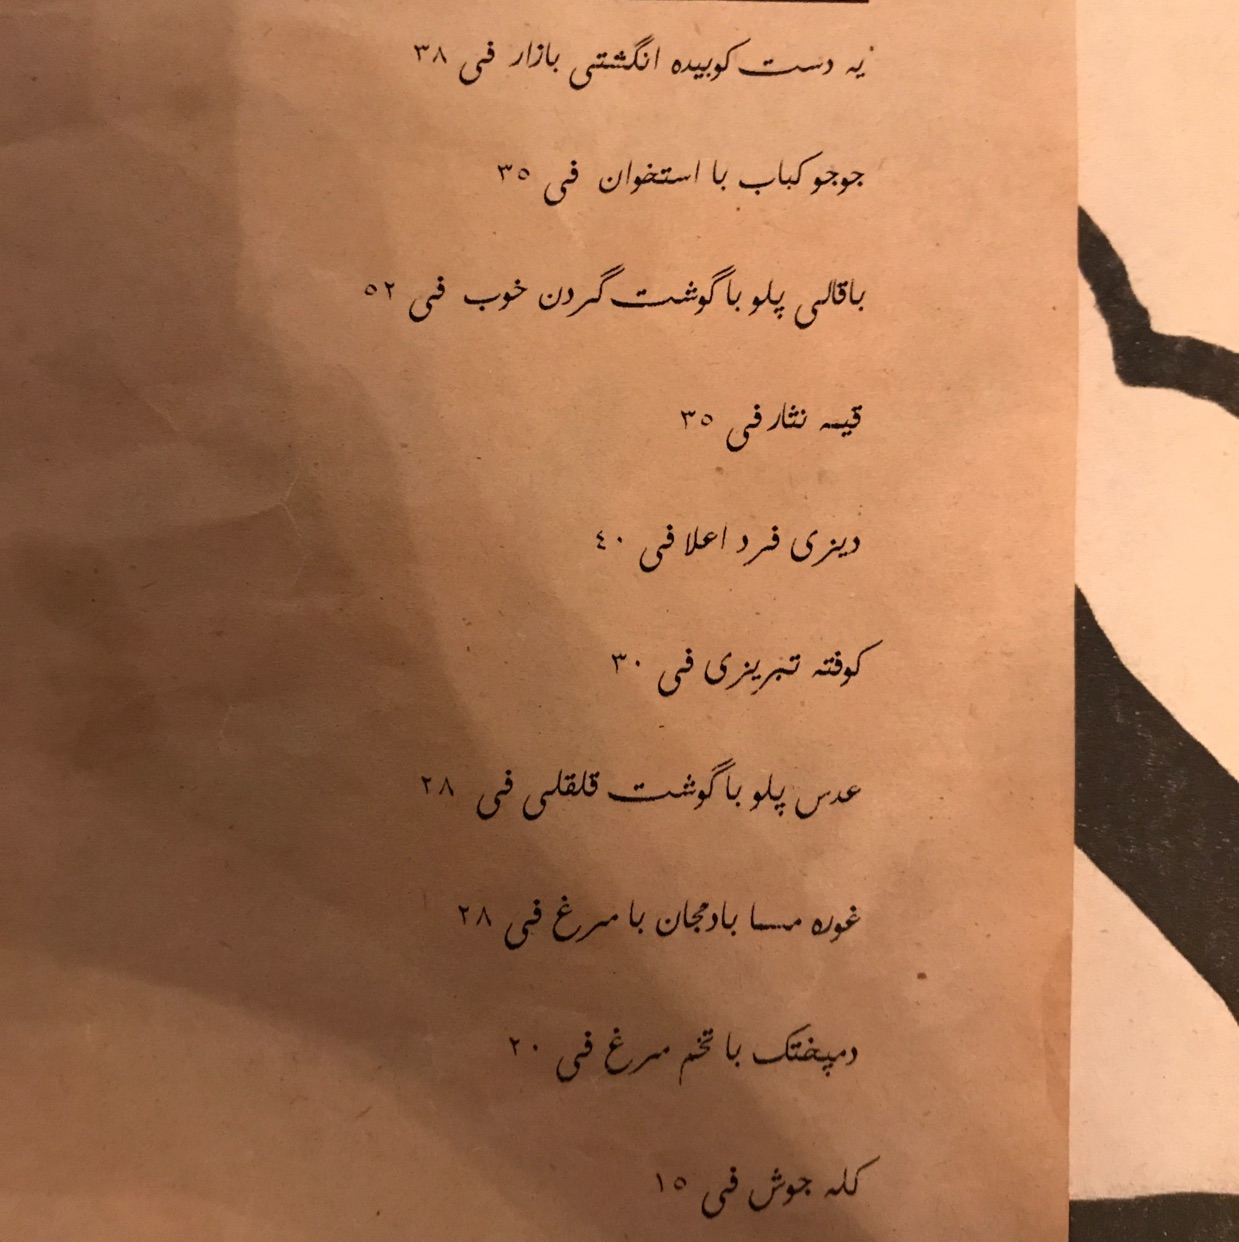 یه دست کوبیده انگشتی بازار فی ۳۸
جوجو کباب با استخوان فی ۳۵
باقالی پلو با گوشت گردن خوب فی ۵۲
قیمه نثار فی ۳۵
دیزی فرد اعلا فی ٤۰
کوفته تبریزی فی ۳۰
عدس پلو با گوشت قلقلی فی ۲۸
غوره مسا بادمجان با مرغ فی ۲۸
دمپختک با تخم مرغ فی ۲۰
کله جوش فی ۱۵